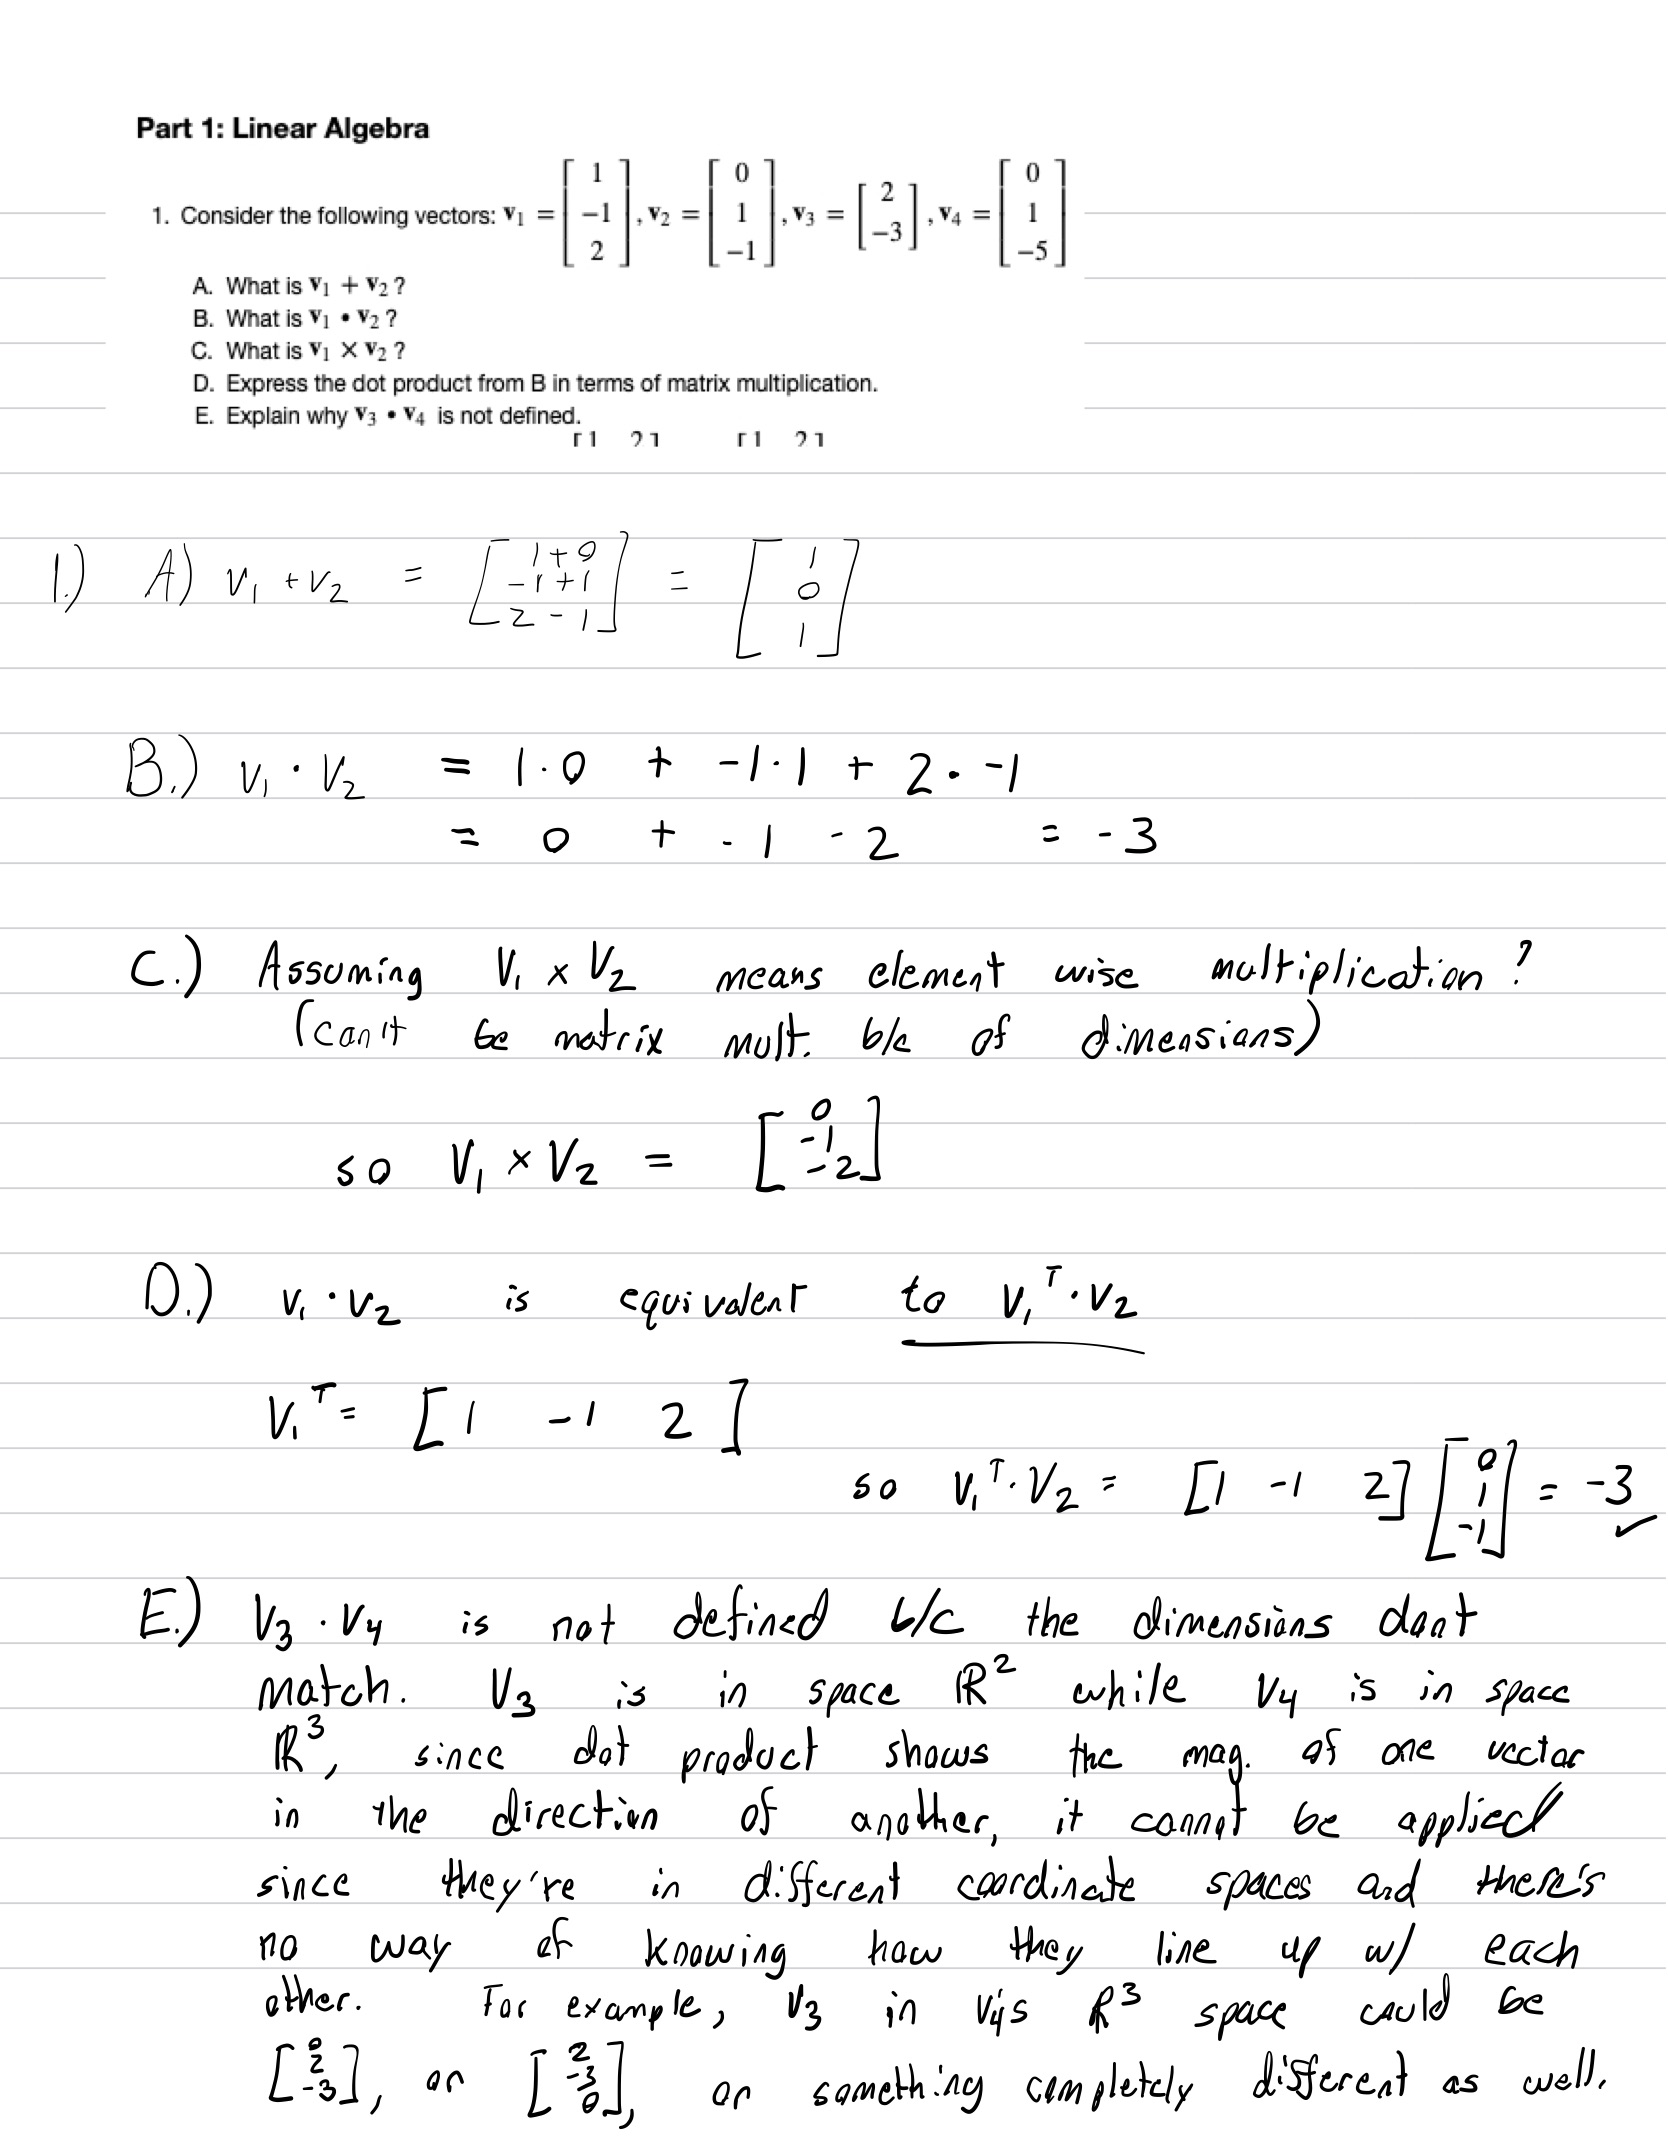 Part 1: Linear Algebra
1. Consider the following vectors: v₁ = [1 −1 2], v₂ = [0 1 −1], v₃ = [2 −3], v₄ = [0 1 −5]
A. What is v₁ + v₂ ?
B. What is v₁ • v₂ ?
C. What is v₁ × v₂ ?
D. Express the dot product from B in terms of matrix multiplication.
E. Explain why v₃ • v₄ is not defined.
1.) A) v₁ + v₂ = [1+0 −1+1 2−1] = [1 0 1]
B.) v₁ · v₂ = 1·0 + -1·1 + 2·-1
= 0 + -1 -2 = -3
C.) Assuming V₁ × V₂ means element wise multiplication?
(can't be matrix mult. b/c of dimensions)
so V₁ × V₂ = [0 -1 -2]
D.) v₁ · v₂ is equivalent to v₁ᵀ · v₂
V₁ᵀ = [1 -1 2]
so V₁ᵀ · V₂ = [1 -1 2] [0 1 -1] = -3 ✓
E.) V₃ · V₄ is not defined b/c the dimensions dont
match. V₃ is in space ℝ² while V₄ is in space
ℝ³, since dot product shows the mag. of one vector
in the direction of another, it cannot be applied
since they're in different coordinate spaces and there's
no way of knowing how they line up w/ each
other. For example, V₃ in V₄'s ℝ³ space could be
[0 2 -3], or [2 -3 0], or something completely different as well.